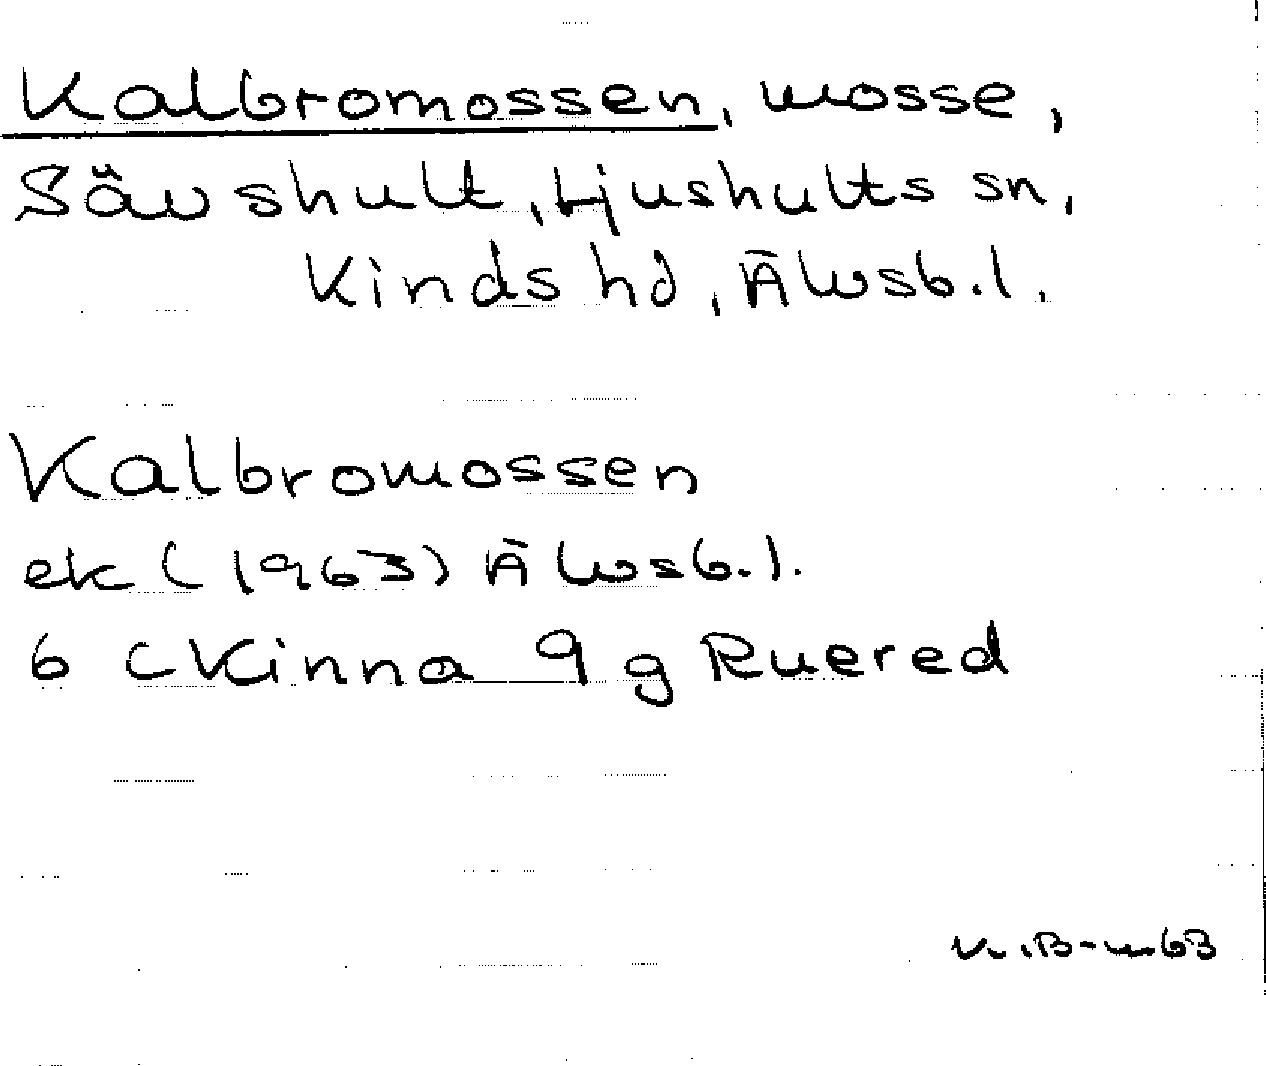 Kalbromossen, mosse,
Sävshult, Ljushults sn,
Kinds hd, Älvsb.l.
Kalbromossen
ek (1963) Älvsb.l.
6 C Kinna 9 g Ruered
K.B-m 63